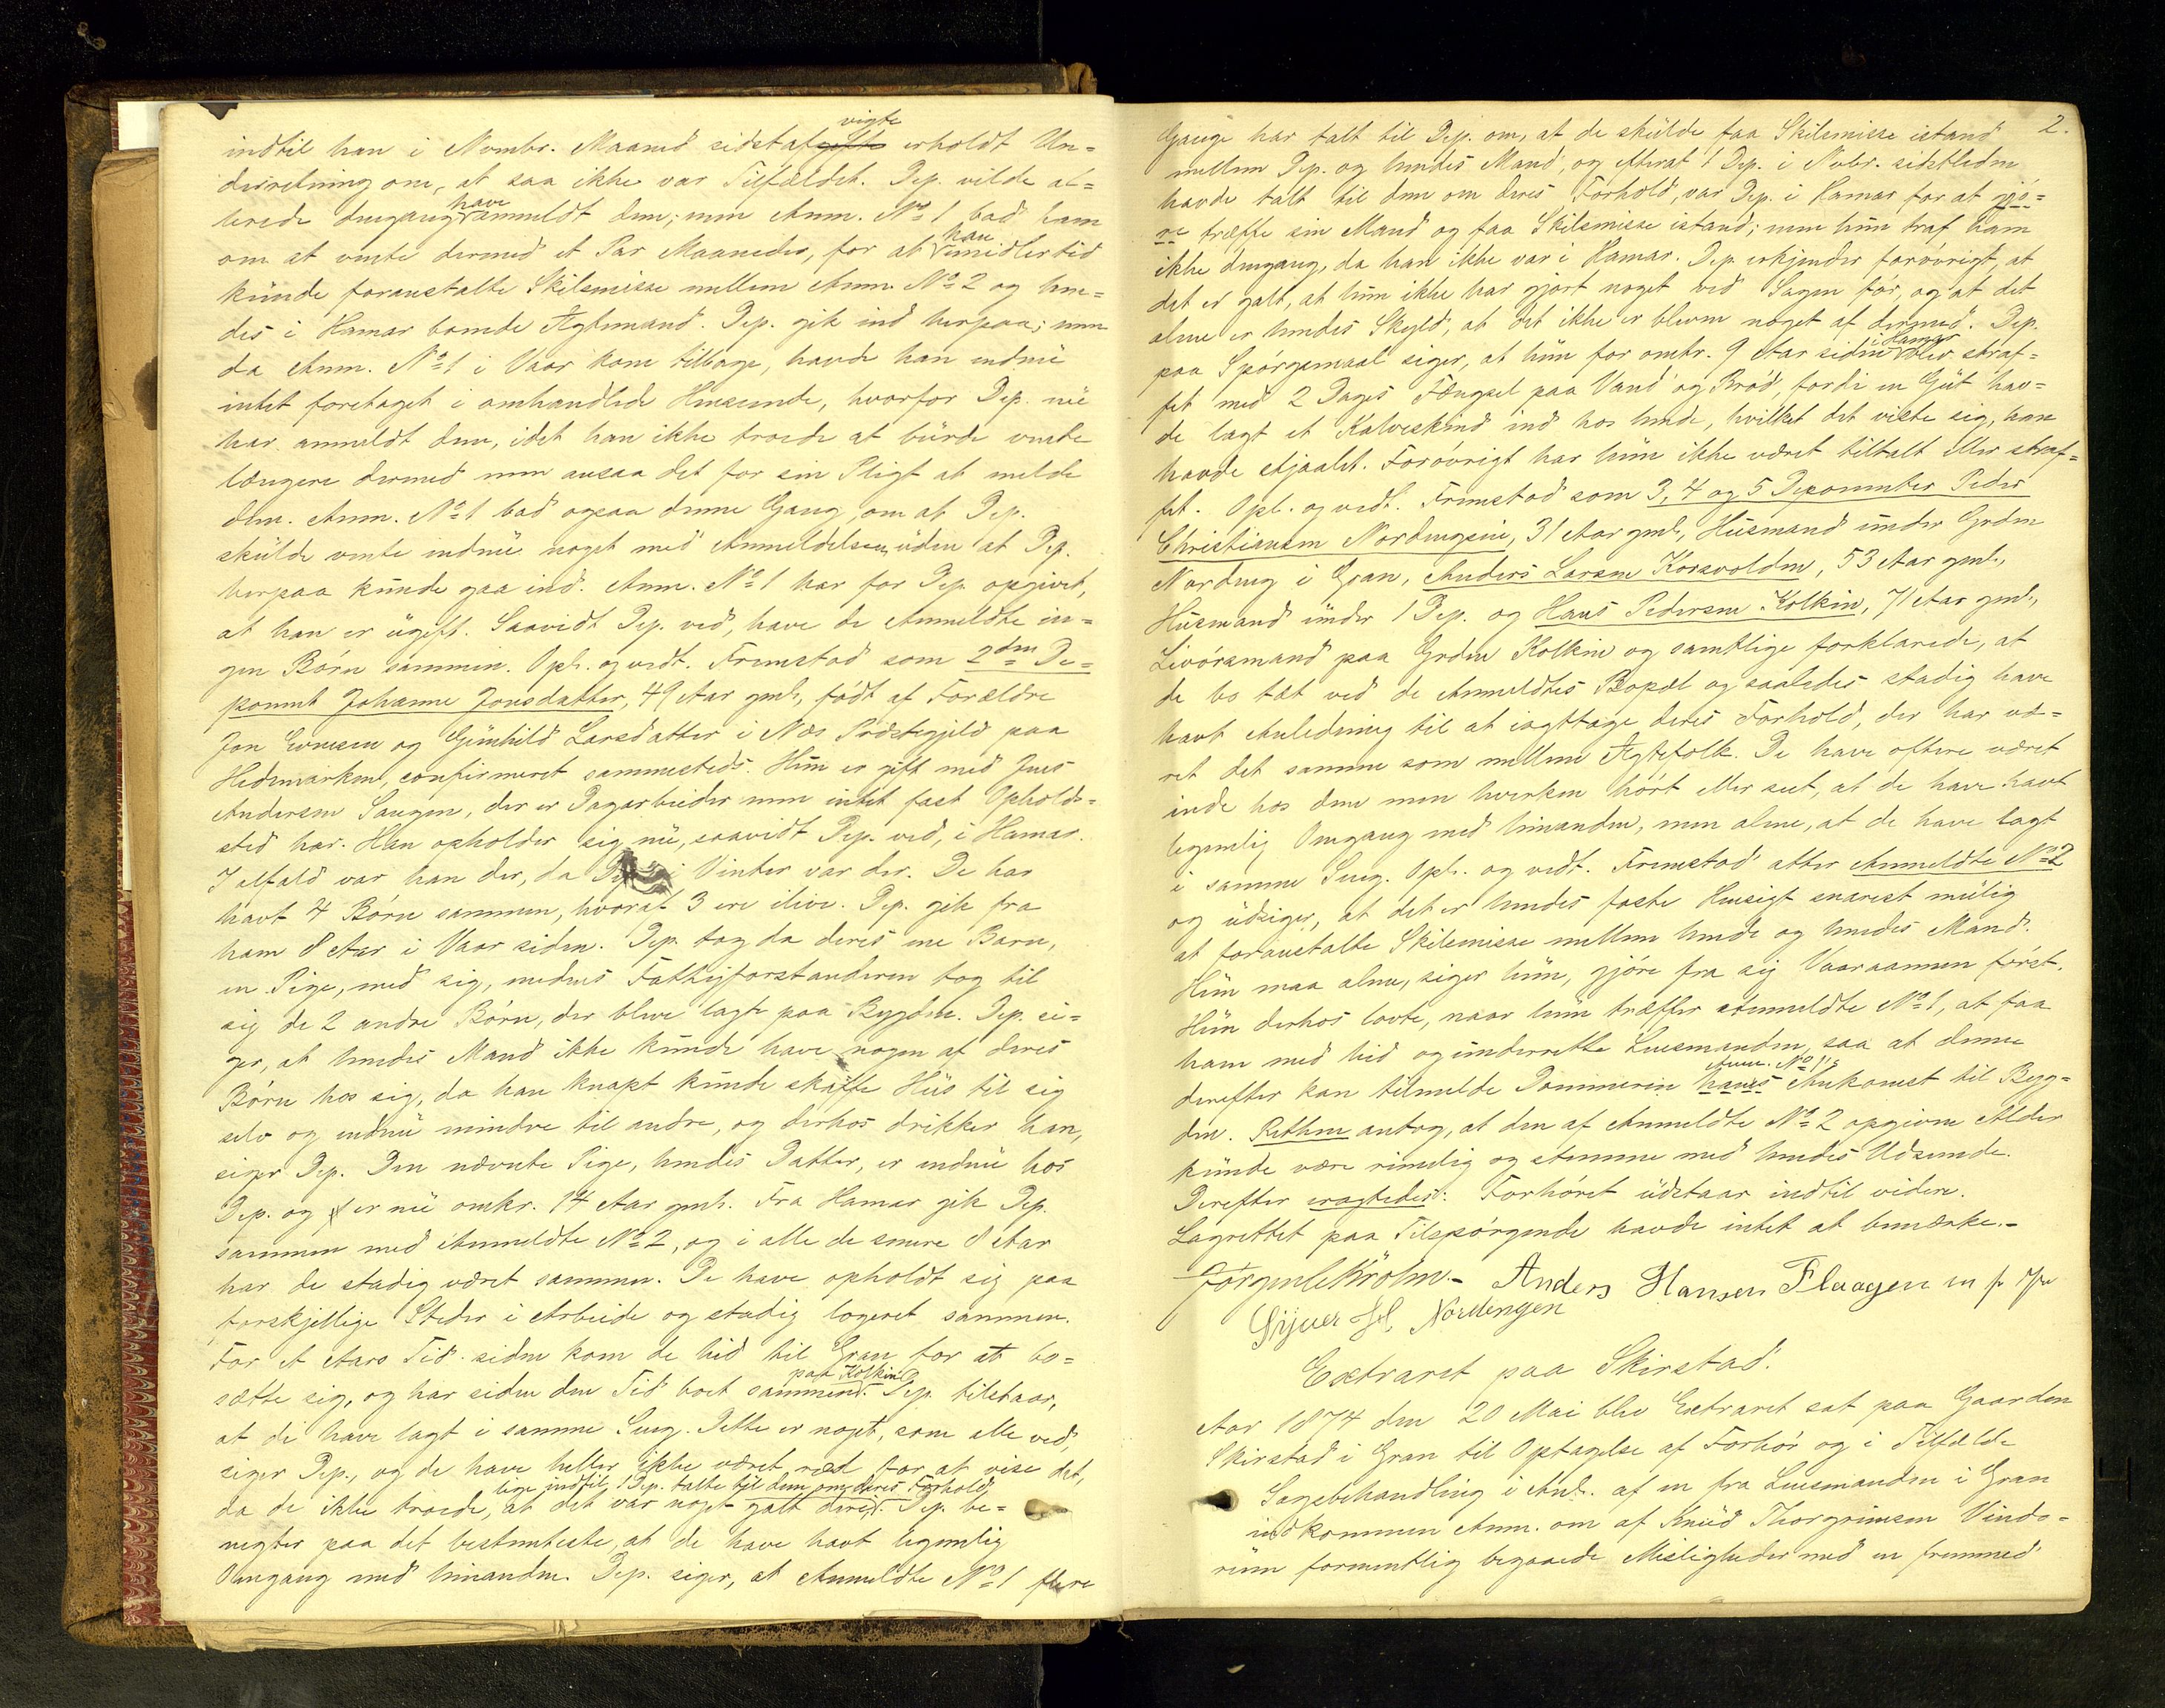 indtil han i Novembr. Maaned sidstafvigte erholdt Un=
derretning om, at saa ikke var Tilfældet. Dep. vilde al=
lerede dengang have anmeldt dem; men Anm. No 1 bad ham
om at vente dermed et Par Maaneder, for at han imidlertid
kunde foranstalte Skilsmisse mellem Anm. No 2 og hen=
des i Hamar boende Ægtemand. Dep. gik ind herpaa; men
da Anm. No 1 i Vaar kom tilbage, havde han endnu
intet foretaget i omhandlede Henseende, hvorfor Dep. nu
har anmeldt dem, idet han ikke troede at burde vente
længere dermed men ansaa det for sin Pligt at melde
dem. Anm. No 1 bad ogsaa denne Gang, om at Dep.
skulde vente endnu noget med Anmeldelsen, uden at Dep.
herpaa kunde gaa ind. Anm. No 1 har for Dep. opgivet,
at han er ugift. Saavidt Dep. ved, have de Anmeldte in=
gen Børn sammen. Opl. og vedt. Fremstod som 2den De=
ponent Johanne Jonsdatter, 49 Aar gml., født af Forældre
Jon Evensen og Gunhild Larsdatter i Næs Præstegjeld paa
Hedemarken, confirmeret sammesteds. Hun er gift med Jens
Andersen Saugen, der er Dagarbeider men intet fast Opholds=
sted har. Han opholder sig nu, saavidt Dep. ved, i Hamar.
I alfald var han der, da Dep. i Vinter var der. De har
havt 4 Børn sammen, hvoraf 3 ere ilive. Dep. gik fra
ham 8 Aar i Vaar siden. Dep. tog da deres ene Barn,
en Pige, med sig, medens Fattigforstanderen tog til
sig de 2 andre Børn, der bleve lagte paa Bygden. Dep. si=
ger, at hendes Mand ikke kunde have nogen af deres
Børn hos sig, da han knapt kunde skaffe Hus til sig
selv og endnu mindre til andre, og derhos drikker han,
siger Dep. Den nævnte Pige, hendes Datter, er endnu hos
Dep. og er nu omkr. 14 Aar gml. Fra Hamar gik Dep.
sammen med Anmeldte No 2, og i alle de senere 8 Aar
har de stadig været sammen. De have opholdt sig paa
forskjellige Steder i Arbeide og stadig logeret sammen.
For et Aars Tid siden kom de hid til Gran for at bo=
sætte sig, og har siden den Tid boet sammen paa Kolkin. Dep. tilstaar,
at de have lagt i samme Seng. Dette er noget, som alle ved,
siger Dep., og de have heller ikke været ræd for at vise det,
da de ikke troede, lige indtil 1 Dep. talte til dem om deres Forhold, at det var noget galt deri. Dep. be=
negter paa det bestemteste, at de have havt legemlig
Omgang med hinanden. Dep. siger, at Anmeldte No 1 flere
2.
Gange har talt til Dep. om, at de skulde faa Skilsmisse istand
mellem Dep. og hendes Mand, og efterat 1 Dep. i Novbr. sidstleden
havde talt til dem om deres Forhold, var Dep. i Hamar for at gjø=
re træffe sin Mand og faa Skilsmisse istand; men hun traf ham
ikke dengang, da han ikke var i Hamar. Dep. erkjender forøvrigt, at
det er galt, at hun ikke har gjort noget ved Sagen før, og at det
alene er hendes Skyld, at det ikke er bleven noget af dermed. Dep.
paa Spørgsmaal siger, at hun for omkr. 9 Aar siden i Hamar blev straf=
fet med 2 Dages Fængsel paa Vand og Brød, fordi en Gut hav=
de lagt et Kalveskind ind hos hende, hvilket det viste sig, han
havde stjaalet. Forøvrigt har hun ikke været tiltalt eller straf=
fet. Opl. og vedt. Fremstod som 3, 4 og 5 Deponenter Peder
Christiansen Nordengeie, 31 Aar gml., Husmand under Grden
Nordeng i Gran, Anders Larsen Korsvolden, 53 Aar gml.,
Husmand under 1 Dep. og Hans Pedersen Kolkin, 71 Aar gml.,
Livørsmand paa Grden Kolkin og samtlige forklarede, at
de bo tæt ved de Anmeldtes Bopæl og saaledes stadig have
havt Anledning til at iagttage deres Forhold, der har væ=
ret det samme som mellem Ægtefolk. De have oftere været
inde hos dem men hverken hørt eller seet, at de have havt
legemlig Omgang med hinanden, men alene, at de have lagt
i samme Seng. Opl. og vedt. Fremstod atter Anmeldte No 2
og udsiger, at det er hendes faste Hensigt snarest mulig
at foranstalte Skilsmisse mellem hende og hendes Mand.
Hun maa alene, siger hun, gjøre fra sig Vaaraannen først.
Hun derhos lovte, naar hun træffer Anmeldte No 1, at faa
ham med hid og underrette Lensmanden, saa at denne
derefter kan tilmelde Dommeren hans Anm. No 1's Ankomst til Byg=
den. Retten antog, at den af Anmeldte No 2 opgivne Alder
kunde være rimelig og stemme med hendes Udseende.
Derefter eragtedes: Forhøret udstaar indtil videre.
Lagrettet paa Tilspørgende havde intet at bemærke.-
Anders Hansen Flaagen m. p. Pen
Nordengen
Extraret paa Skirstad.
Aar 1874 den 20 Mai blev Extraret sat paa Gaarden
Skirstad i Gran til Optagelse af Forhør og i Tilfælde
Sagsbehandling i Anl. af en fra Lensmanden i Gran
indkommen Anm. om af Knud Thorgrimsen Vindo=
renn formentlig begaaede Misligheder med en fremmed